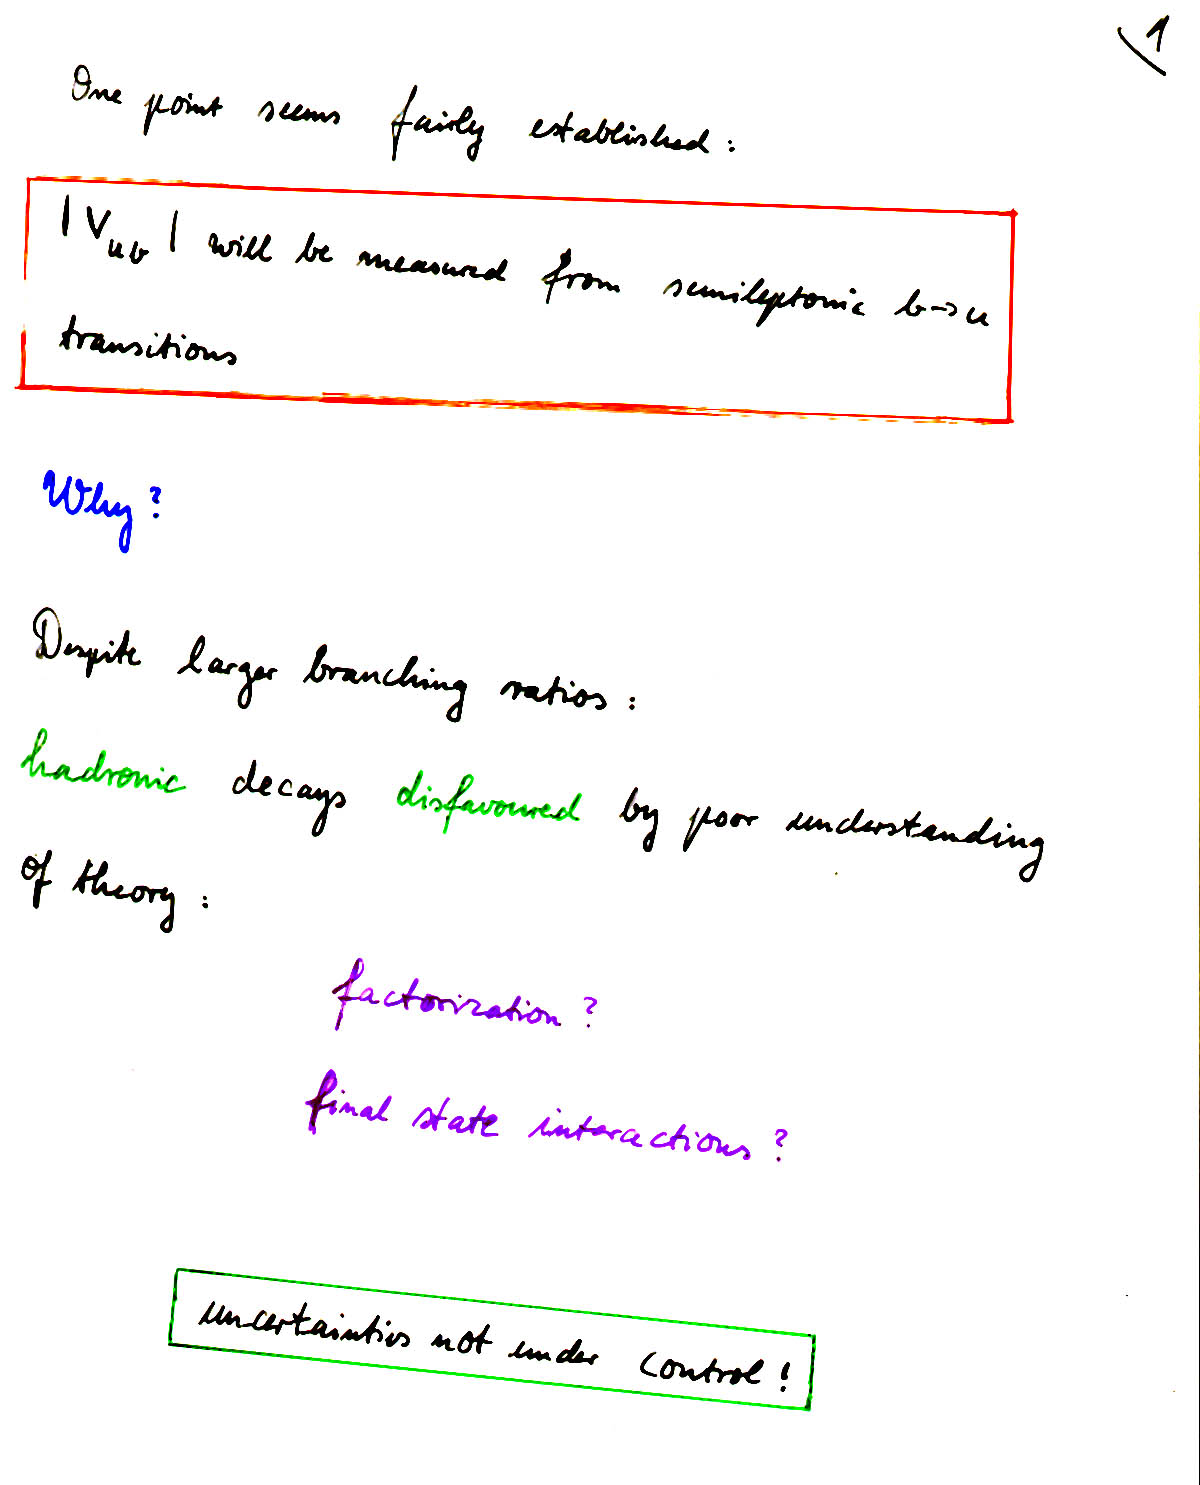 1
One point seems fairly established:
|V_ub| will be measured from semileptonic b→u
transitions
Why?
Despite larger branching ratios:
hadronic decays disfavoured by poor understanding
of theory:
factorization?
final state interactions?
uncertainties not under control!